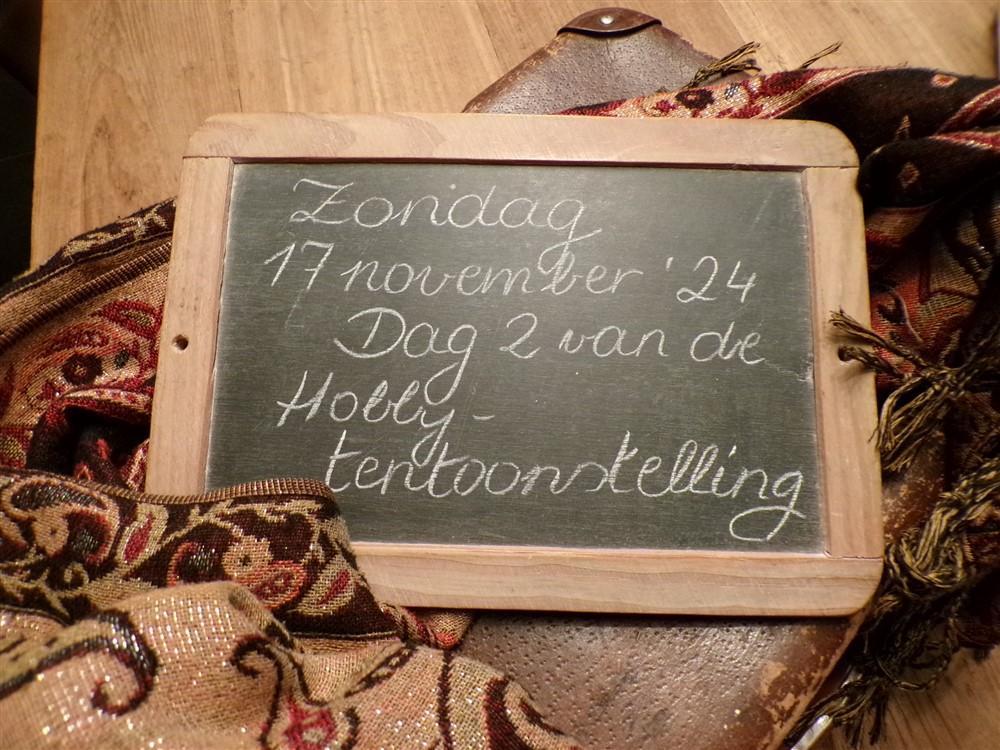 Zondag
17 november '24
Dag 2 van de
Hobby-
tentoonstelling